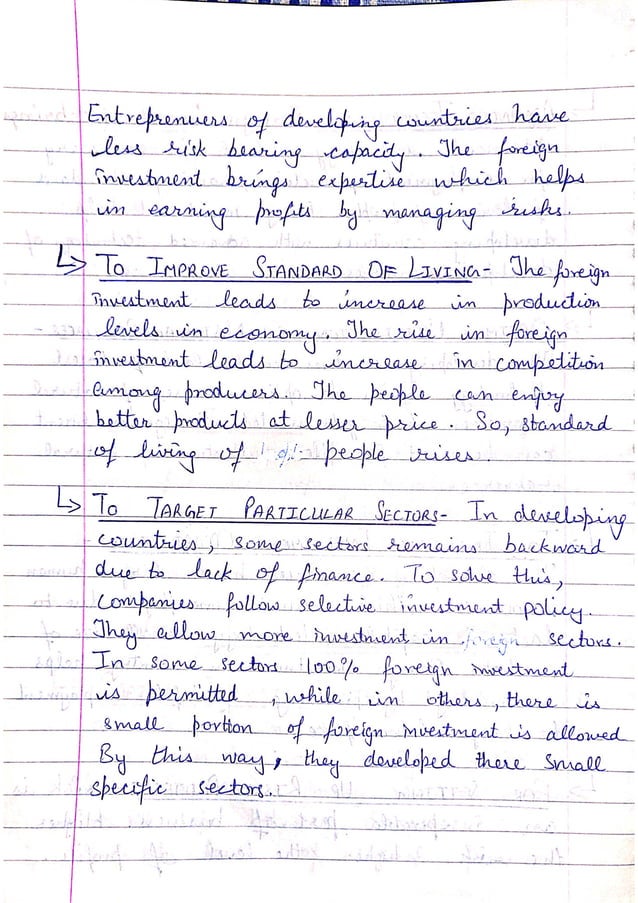 Entreprenuers of developing countries have
less risk bearing capacity. The foreign
investment brings expertise which helps
in earning profits by managing risks.
↳ TO IMPROVE STANDARD OF LIVING- The foreign
investment leads to increase in production
levels in economy. The rise in foreign
investment leads to increase in competition
among producers. The people can enjoy
better products at lesser price. So, standard
of living of people rises.
↳ TO TARGET PARTICULAR SECTORS- In developing
countries, some sectors remains backward
due to lack of finance. To solve this,
companies follow selective investment policy.
They allow more investment in foreign sectors.
In some sectors 100% foreign investment
is permitted, while in others, there is
small portion of foreign investment is allowed
By this way, they developed there small
specific sectors.